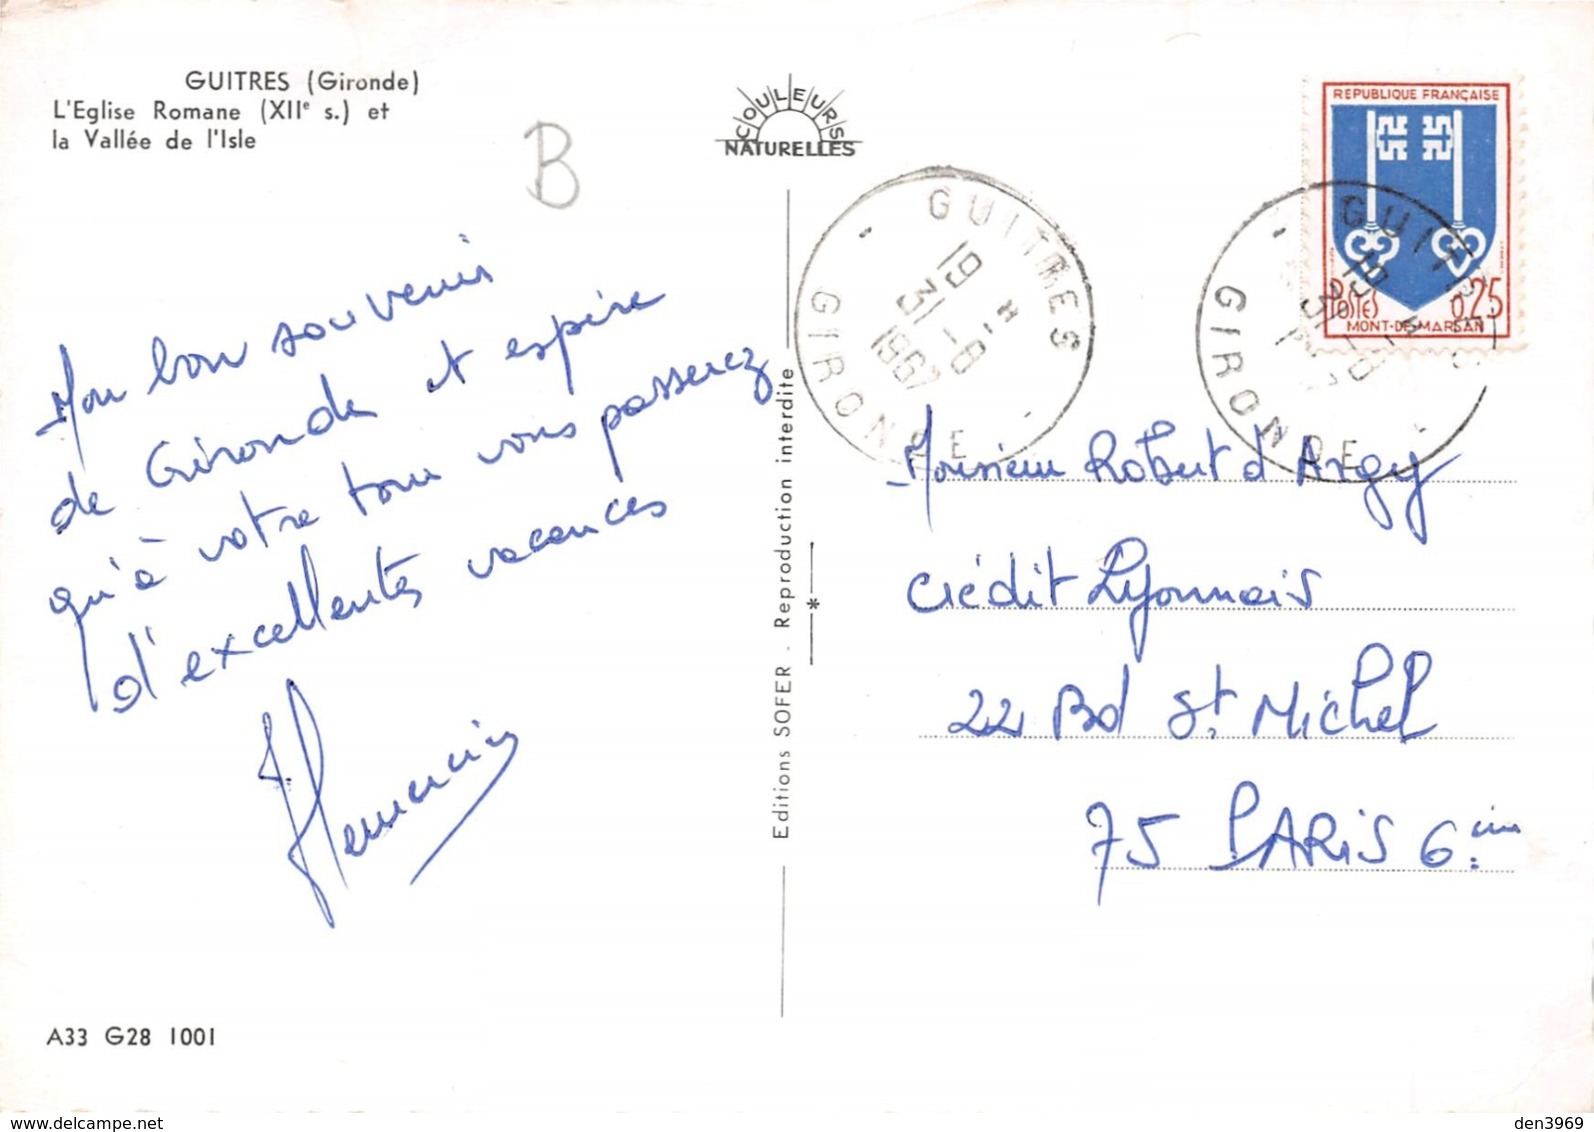 GUITRES (Gironde)
L'Eglise Romane (XIIe s.) et
la Vallée de l'Isle
B
COULEURS
NATURELLES
REPUBLIQUE FRANÇAISE
POSTES 0,25
MONT-DE-MARSAN
GUITRES
19 H
31-8
1967
GIRONDE
GUITRES
19 H
31-8
GIRONDE
Mon bon souvenir
de Gironde et espère
qu'à votre tour vous passerez
d'excellentes vacances
Editions SOFER - Reproduction interdite
Monsieur Robert d'Argy
Crédit Lyonnais
22 Bd St. Michel
75 PARIS 6.
A33 G28 1001
delcampe.net
den3969